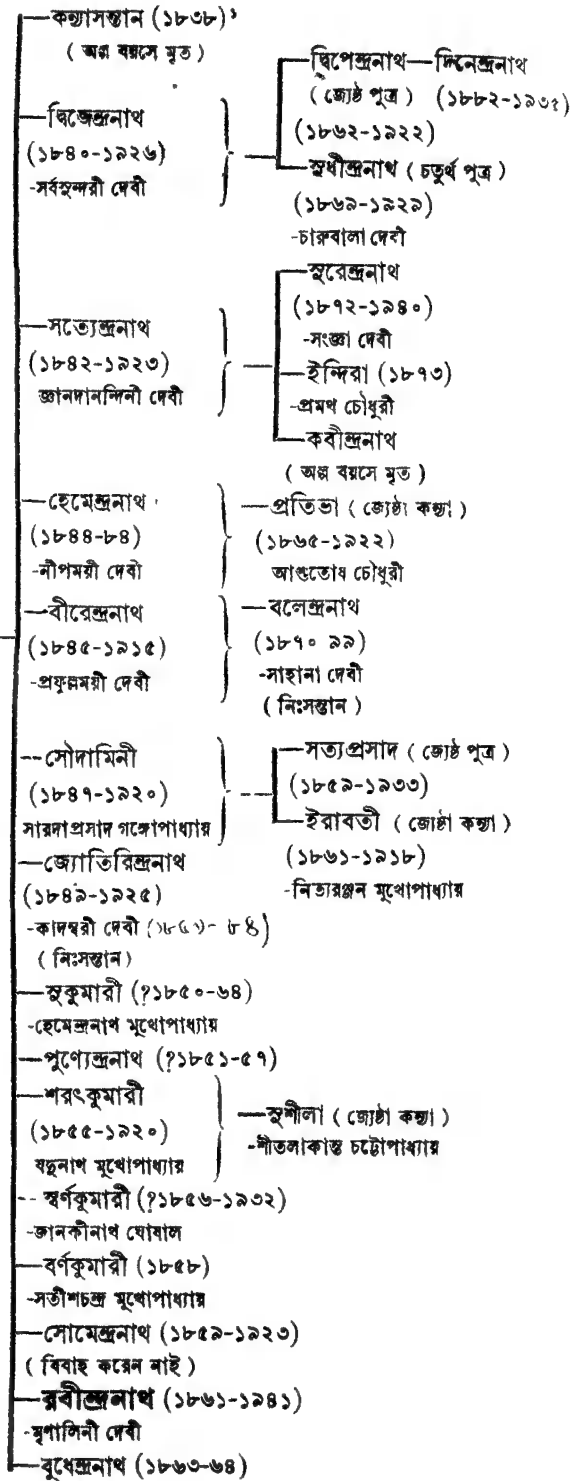 কন্যাসন্তান (১৮৩৮)১
( অল্প বয়সে মৃত )
দ্বিজেন্দ্রনাথ
(১৮৪০-১৯২৬)
-সর্বসুন্দরী দেবী
দ্বিপেন্দ্রনাথ—দিনেন্দ্রনাথ
( জ্যেষ্ঠ পুত্র ) (১৮৮২-১৯৩৫)
(১৮৬২-১৯২২)
সুধীন্দ্রনাথ ( চতুর্থ পুত্র )
(১৮৬৯-১৯২৯)
-চারুবালা দেবী
সত্যেন্দ্রনাথ
(১৮৪২-১৯২৩)
জ্ঞানদানন্দিনী দেবী
সুরেন্দ্রনাথ
(১৮৭২-১৯৪০)
-সংজ্ঞা দেবী
ইন্দিরা (১৮৭৩)
-প্রমথ চৌধুরী
কবীন্দ্রনাথ
( অল্প বয়সে মৃত )
হেমেন্দ্রনাথ
(১৮৪৪-৮৪)
-নীপময়ী দেবী
প্রতিভা ( জ্যেষ্ঠা কন্যা )
(১৮৬৫-১৯২২)
আশুতোষ চৌধুরী
বীরেন্দ্রনাথ
(১৮৪৫-১৯১৫)
-প্রফুল্লময়ী দেবী
বলেন্দ্রনাথ
(১৮৭০ ৯৯)
-সাহানা দেবী
( নিঃসন্তান )
সৌদামিনী
(১৮৪৭-১৯২০)
সারদাপ্রসাদ গঙ্গোপাধ্যায়
সত্যপ্রসাদ ( জ্যেষ্ঠ পুত্র )
(১৮৫৯-১৯৩৩)
ইরাবতী ( জ্যেষ্ঠা কন্যা )
(১৮৬১-১৯১৮)
-নিত্যরঞ্জন মুখোপাধ্যায়
জ্যোতিরিন্দ্রনাথ
(১৮৪৯-১৯২৫)
-কাদম্বরী দেবী (১৮৫৯- ৮৪)
( নিঃসন্তান )
সুকুমারী (?১৮৫০-৬৪)
-হেমেন্দ্রনাথ মুখোপাধ্যায়
পুণ্যেন্দ্রনাথ (?১৮৫১-৫৭)
শরৎকুমারী
(১৮৫৫-১৯২০)
যদুনাথ মুখোপাধ্যায়
সুশীলা ( জ্যেষ্ঠা কন্যা )
-শীতলাকান্ত চট্টোপাধ্যায়
স্বর্ণকুমারী (?১৮৫৬-১৯৩২)
-জানকীনাথ ঘোষাল
বর্ণকুমারী (১৮৫৮)
-সতীশচন্দ্র মুখোপাধ্যায়
সোমেন্দ্রনাথ (১৮৫৯-১৯২৩)
( বিবাহ করেন নাই )
রবীন্দ্রনাথ (১৮৬১-১৯৪১)
-মৃণালিনী দেবী
বুধেন্দ্রনাথ (১৮৬৩-৬৪)